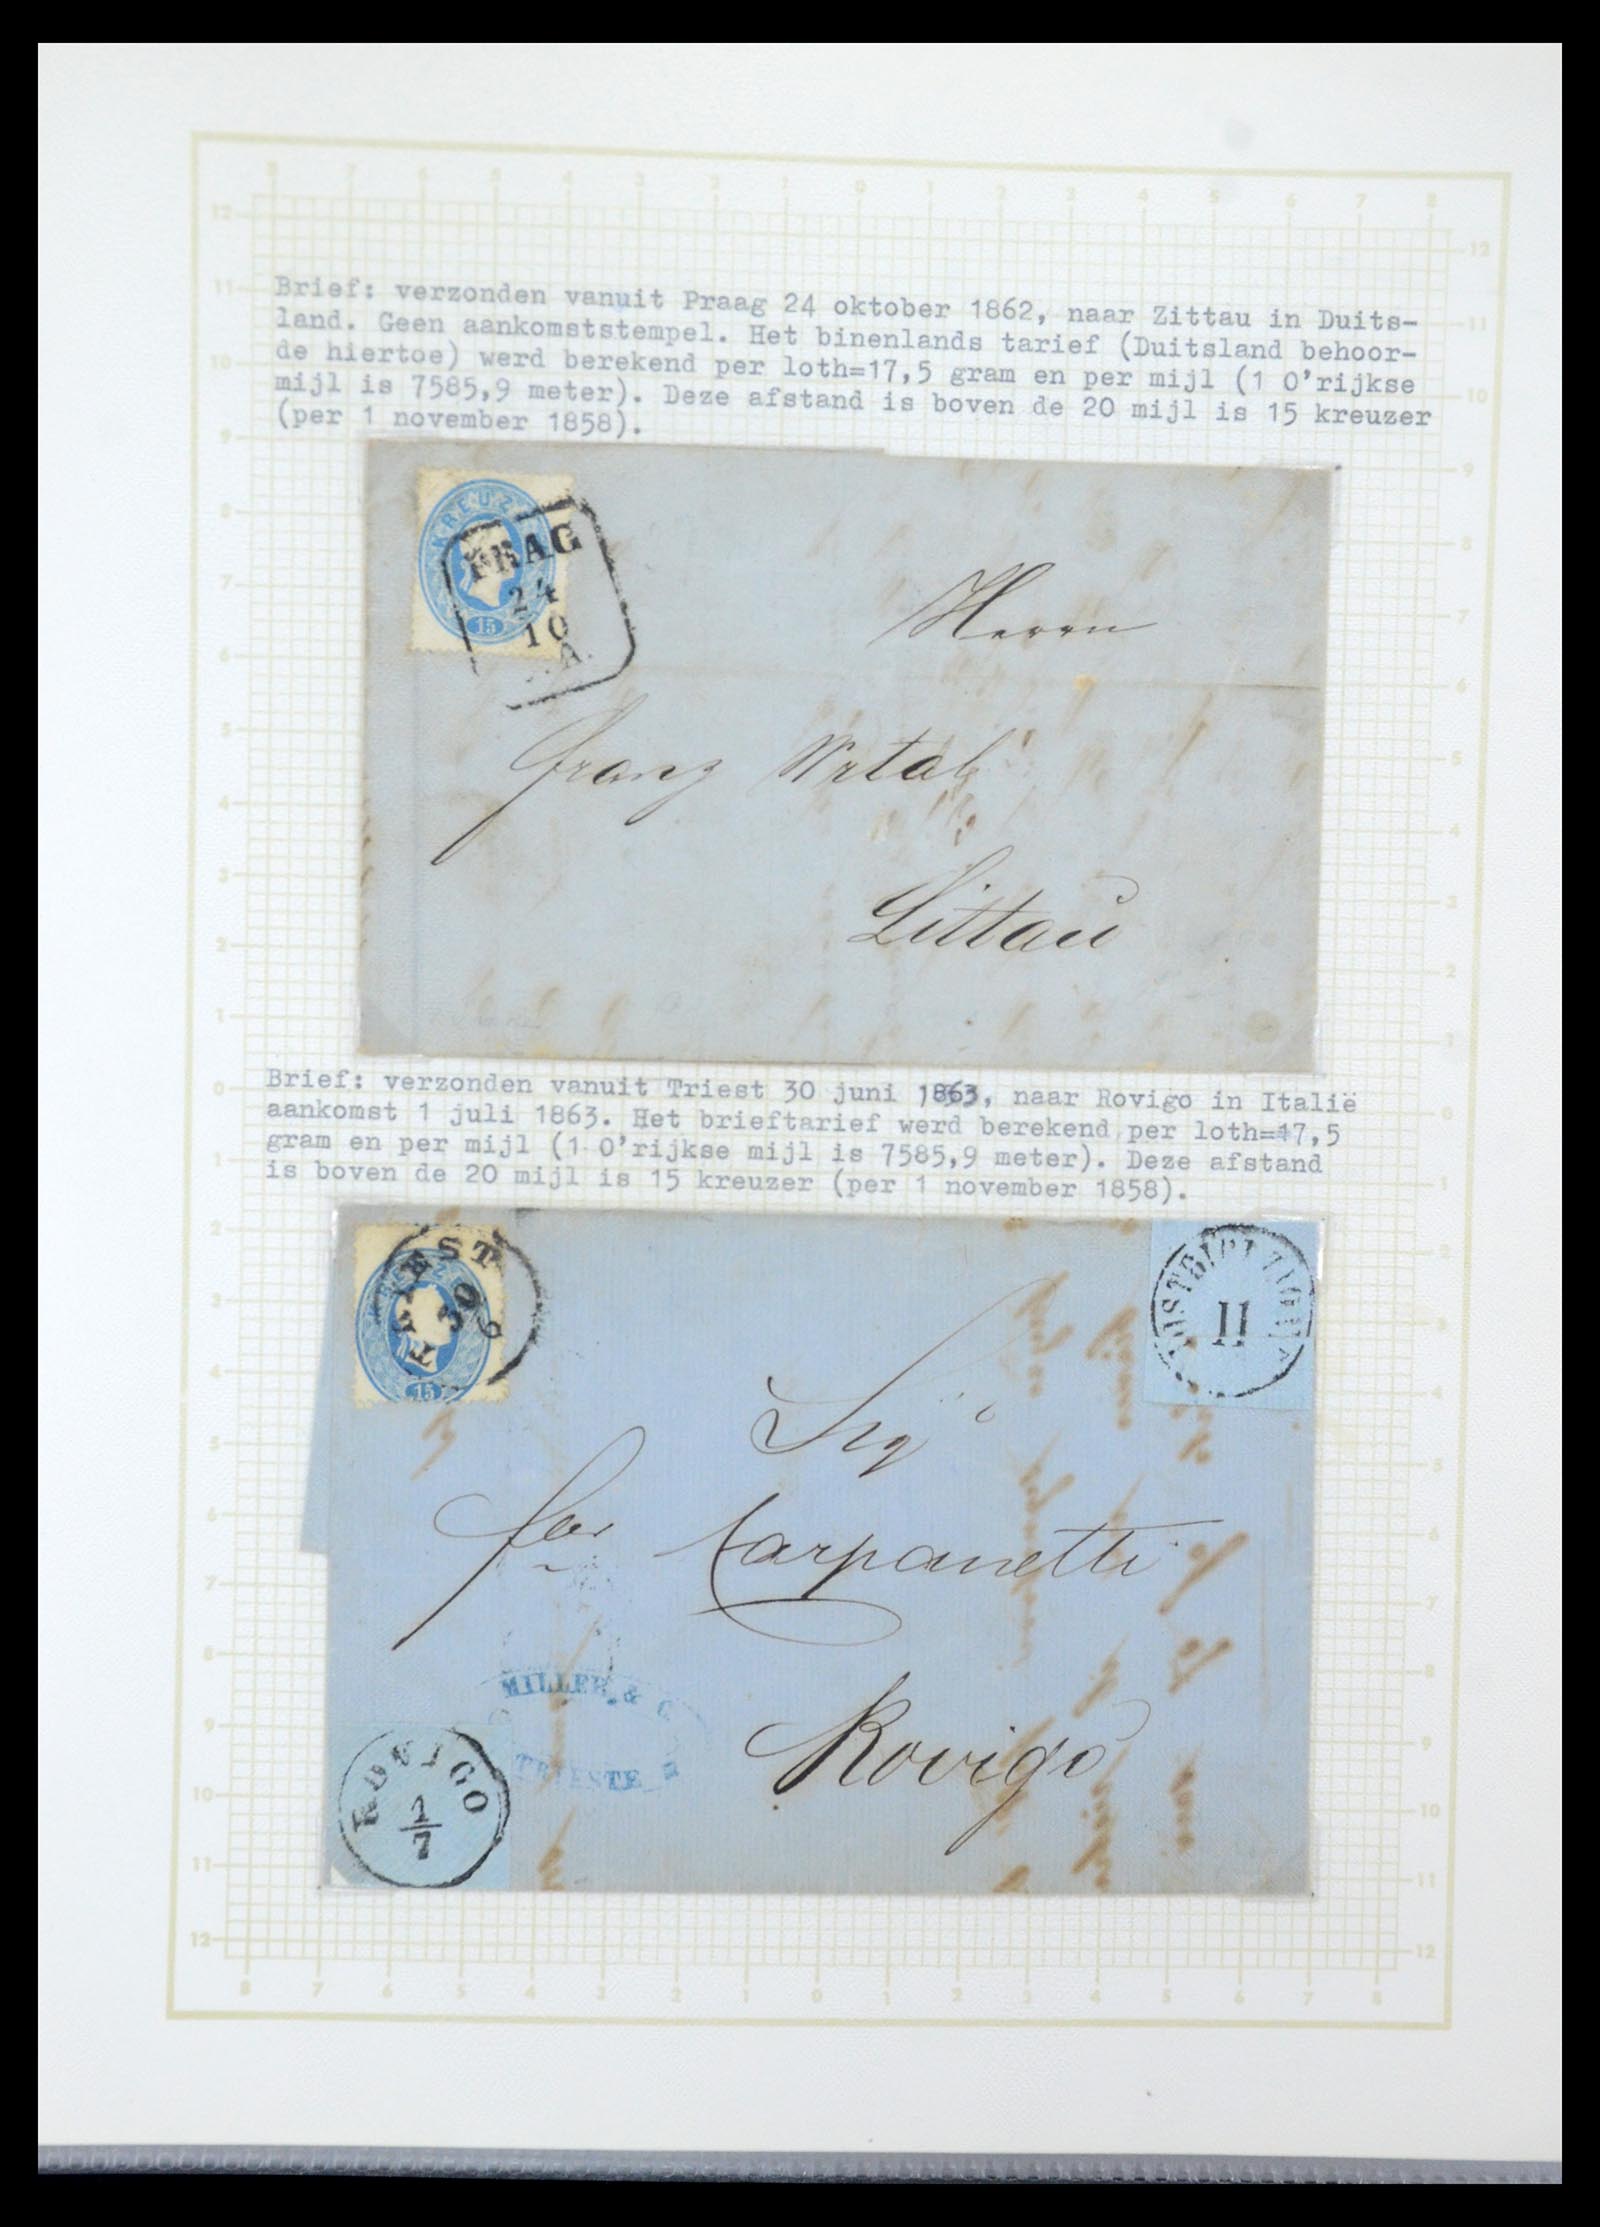 Brief: verzonden vanuit Praag 24 oktober 1862, naar Zittau in Duits-
land. Geen aankomststempel. Het binenlands tarief (Duitsland behoor-
de hiertoe) werd berekend per loth=17,5 gram en per mijl (1 O'rijkse
mijl is 7585,9 meter). Deze afstand is boven de 20 mijl is 15 kreuzer
(per 1 november 1858).
KREUZER
15
PRAG
24
10
A.
Herrn
Franz
Zittau
Brief: verzonden vanuit Triest 30 juni 1863, naar Rovigo in Italië
aankomst 1 juli 1863. Het brieftarief werd berekend per loth=17,5
gram en per mijl (1 O'rijkse mijl is 7585,9 meter). Deze afstand
is boven de 20 mijl is 15 kreuzer (per 1 november 1858).
KREUZER
15
TRIEST
30
6
II
Sigr
Carpanetti
Rovigo
MILLER & C.
TRIESTE
ROVIGO
1
7